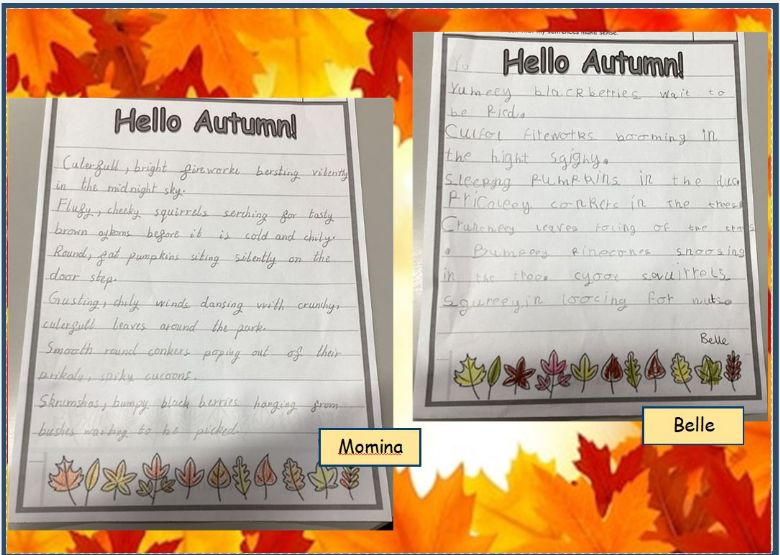 Hello Autumn!
Culerfull, bright fireworks bersting vilently
in the midnight sky.
Flufy, cheeky squirrels serching for tasty
brown aykorns before it is cold and chily.
Round, fat pumpkins siting silently on the
door step.
Gusting, chily winds dansing with crunchy,
culerfull leaves around the park.
Smooth round conkers poping out of their
spiky cucoons.
Skrumshas, bumpy black berries hanging from
bushes waiting to be picked.
Momina
my sentences make sense.
Hello Autumn!
Yu
Yumeey blackberries wait to
be Picd.
Culfol fireworks booming in
the night
Sleeping PumPkins in the
conkers in the trees
Cruncheey leaves foling of the
Bumpeey Pinecones snoosing
in the squirrels
loocing for nuts.
Belle
Belle